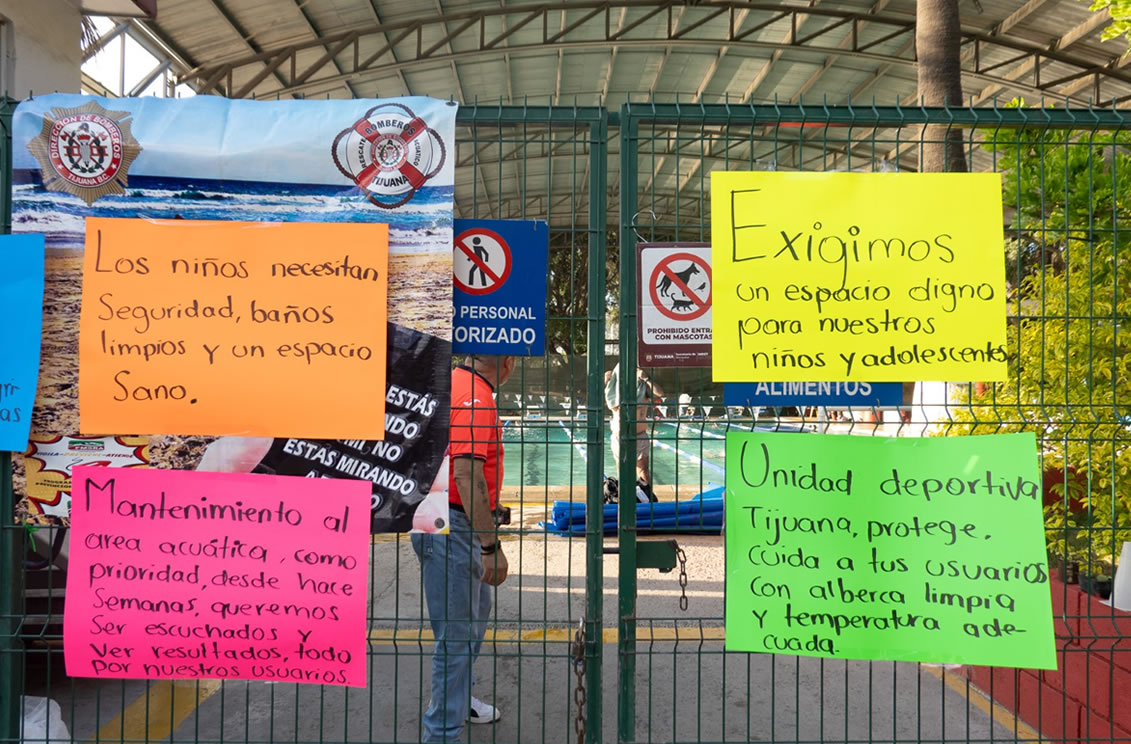 DIRECCION DE BOMBEROS
TIJUANA B.C.
BOMBEROS
RESCATE ACUÁTICO
TIJUANA
Los niños necesitan
Seguridad, baños
limpios y un espacio
Sano.
PERSONAL
PROHIBIDO
CON MASCOTAS
TIJUANA
Exigimos
un espacio digno
para nuestros
niños y adolescentes
ALIMENTOS
ESTÁS
NO
ESTAS MIRANDO
Mantenimiento al
area acuática, como
prioridad, desde hace
Semanas, queremos
Ser escuchados y
Ver resultados, todo
por nuestros usuarios.
Unidad deportiva
Tijuana, protege,
cuida a tus usuarios
Con alberca limpia
y temperatura ade-
cuada.